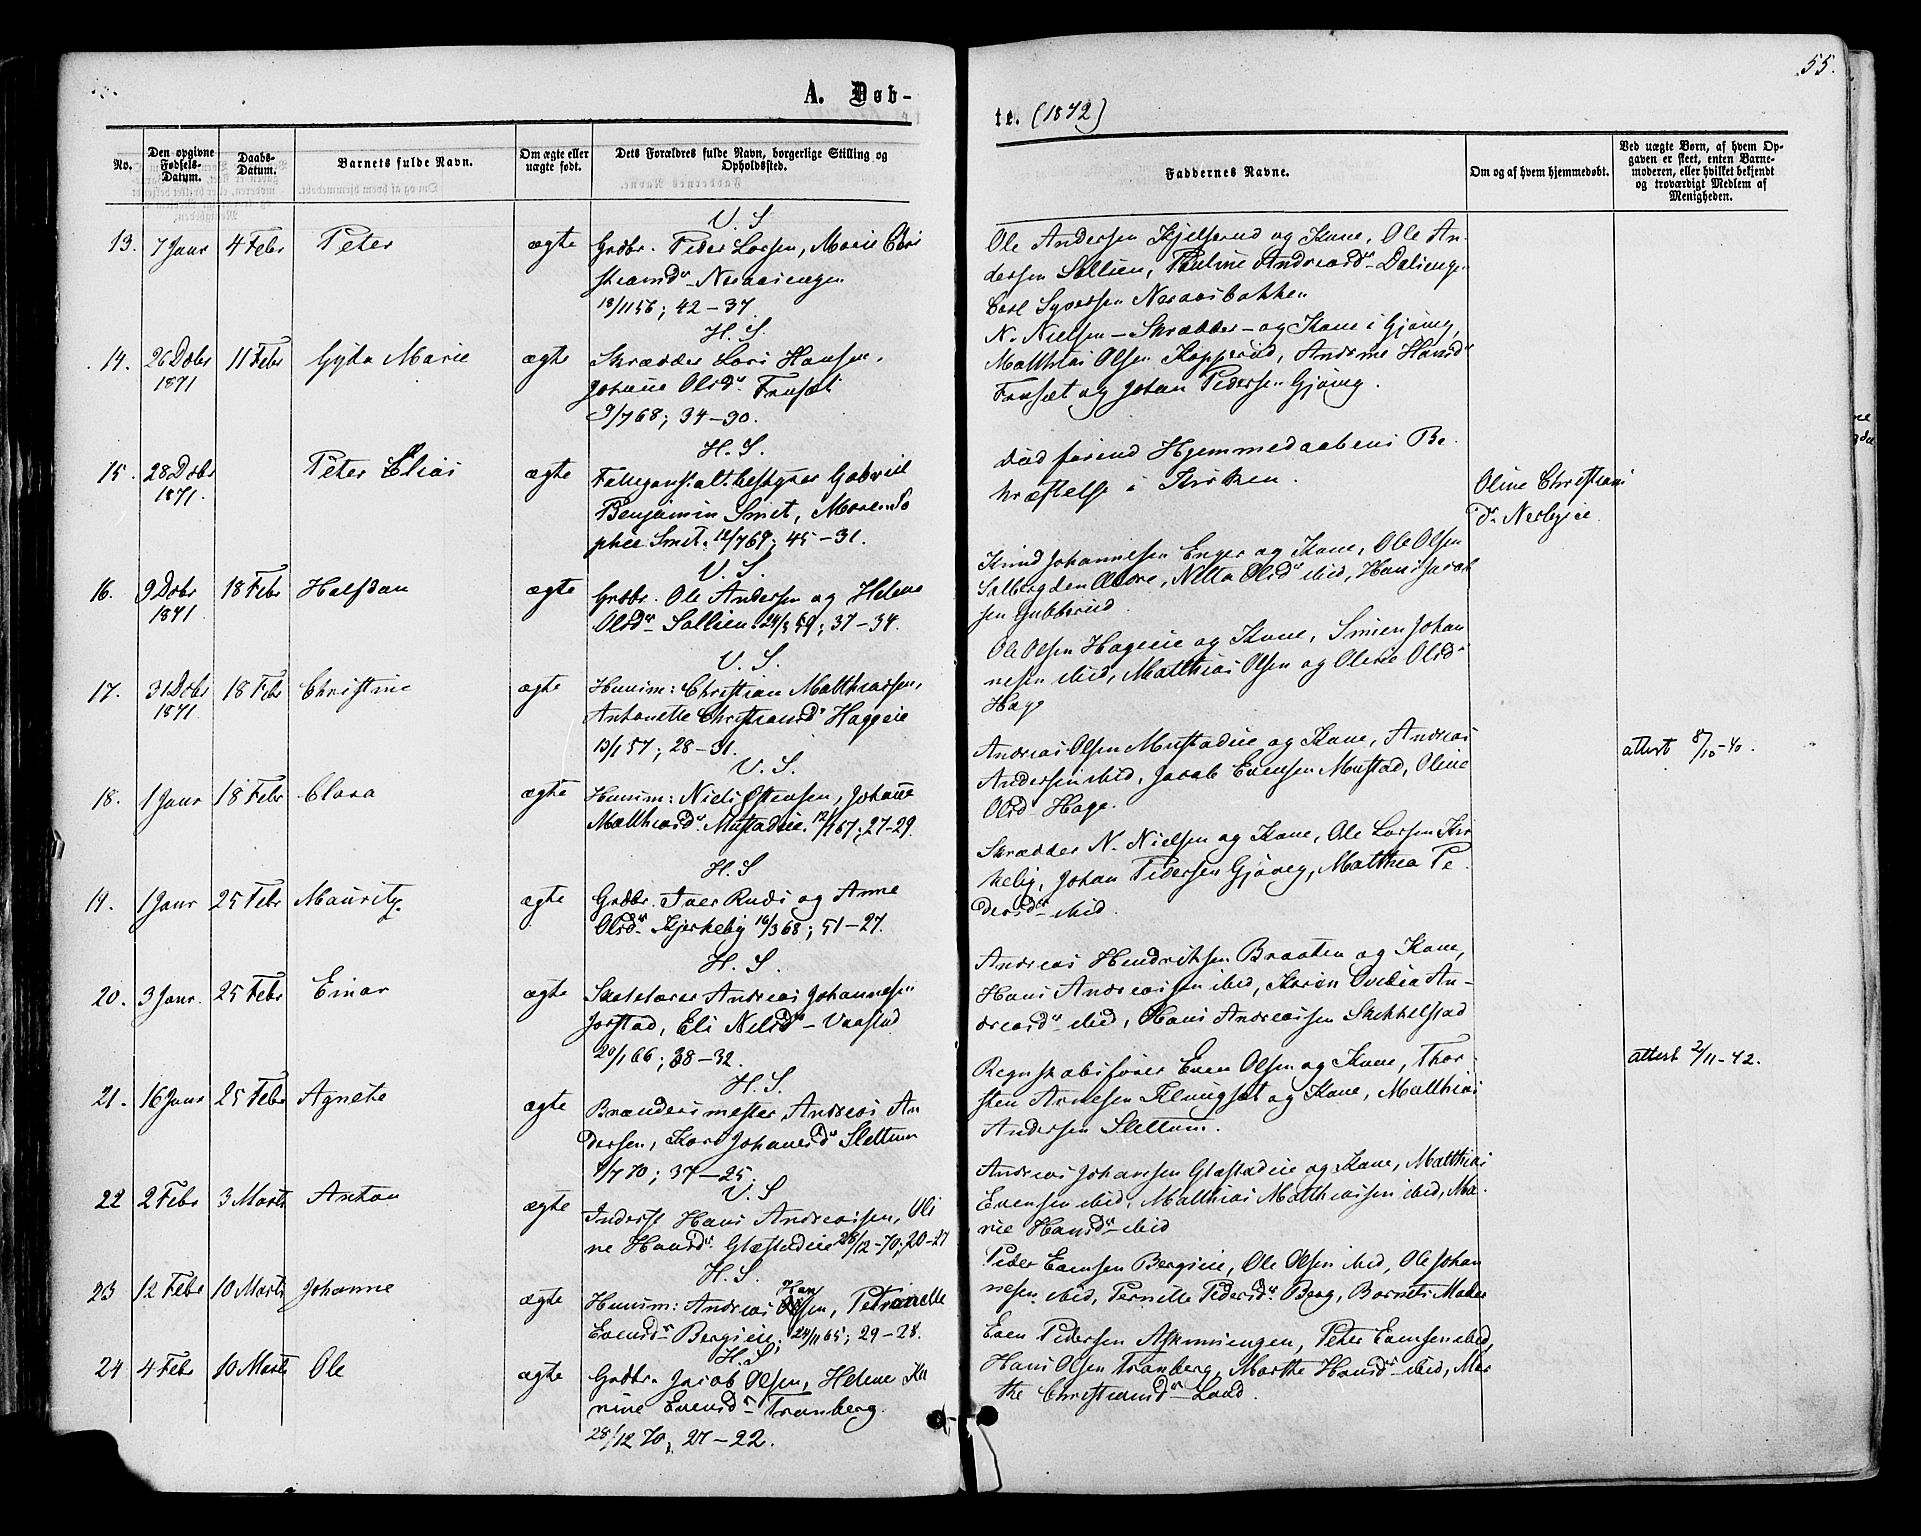 A. Døb-
te. (1872)
55.
No.
Den opgivne Fødsels-Datum.
Daabs-Datum.
Barnets fulde Navn.
Om ægte eller uægte født.
Dets Forældres fulde Navn, borgerlige Stilling og Opholdssted.
Faddernes Navne.
Om og af hvem hjemmedøbt.
Ved uægte Børn, af hvem Op-
gaven er skeet, enten Barne-
moderen, eller hvilket bekjendt
og troværdigt Medlem af
Menigheden.
V. S.
13. 7 Janr 4 Febr Peter ægte Grdbr. Peder Larsen, Marie Chri
stiansd Neraasengen
18/11 56; 42-37.
Ole Andersen Kjelserud og Kone, Ole An-
dersen Sollien, Pauline Andreasd Dalienge
Carl Syversen Neraasbakken
H. S.
14. 26 Dcbr 11 Febr Gyda Marie ægte Skrædder Lars Hansen,
1871 Johane Olsd
9/7 68; 34-30.
N. Nielsen - Skrædder - og Kone i Gjøvig,
Matthias Olsen Kopperud, Andrine Hansd
og Johan Pedersen Gjøvig.
H. S.
15. 28 Dcbr Peter Elias ægte Fatteganst.alt.bestyrer Gabriel
1871. Benjamin Smet,
Smet. 12/7 69; 45-31.
Død førend Hjemmedaabens Be-
kræftelse i Kirken.
Oline Christians
d. Nerbyeie
V. S.
16. 9 Dcbr 18 Febr Halfdan ægte Grdbr. Ole Andersen og Helene
1871 Olsd Sollien. 59; 37-34.
Knud Johannesen Enger og Kone, Ole Olsen
Solberg den Ældre, Netta Olsd ibid, Hans Jacob
sen Gubberud.
V. S.
17. 31 Dcbr 18 Febr Christine ægte Huusm: Christian Matthiassen,
1871. Antonette Christiansd Hageeie
13/1 57; 28-31.
Ole Olsen Hageeie og Kone, Simen Johan
nesen ibid, Matthias Olsen og Oline Olsd
Hage
V. S.
18. 1 Janr 18 Febr Clara ægte Huusm: Niels Østensen, Johane
Matthiasd. Mustadeie. 12/1 67; 27-29.
Andreas Olsen Mustadeie og Kone, Andreas
Andersen ibid, Jacob Evensen Mustad, Oline
Olsd Hage.
attest 8/10-40.
H. S
19. 1 Janr 25 Febr Mauritz. ægte Grdbr. Iver Ruds og Anne
Olsd Kjerkeby 16/3 68; 51-27.
Skrædder N. Nielsen og Kone, Ole Larsen Kir
keby, Johan Pedersen Gjøvig, Matthea Pe-
dersd ibid.
H. S.
20. 3 Janr. 25 Febr Einar ægte Skolelærer Andreas Johannesen
Jorstad, Eli Nilsd Vaastad
20/1 66; 38-32.
Andreas Hendriksen Braaten og Kone,
Hans Andreassen ibid, Karen Ovidia An-
dreasd ibid, Hans Andreassen Skikkelstad
H. S.
21. 16 Janr 25 Febr Agnete ægte Brænderimester Andreas An
dersen, Kari Johanesd Slettum
9/7 70; 37-25.
Regnskabsfører Even Olsen og Kone, Thor-
sten Arnesen og Kone, Matthias
Andersen Slettum.
attest 2/11-42.
V. S
22 2 Febr 3 Marts Anton ægte Inderst Hans Andreassen, Oli
ne Hansd. Glæstadeie 28/12-70; 20-27
Andreas Johansen Glæstadeie og Kone, Matthias
Evensen ibid, Matthias Matthiassen ibid, Ma-
rie Hansd ibid
H. S.
23 12 Febr 10 Marts Johanne ægte Huusm: Andreas Hansen, Petronelle
Evensd Bergseie; 24/11 65; 29-28.
Peder Evensen Bergseie, Ole Olsen ibid, Ole Johan
nesen ibid, Pernille Pedersd Berg, Barnets Moder
H. S
24 4 Febr 10 Marts Ole ægte Grdbr. Jacob Olsen, Helene Ka
rine Evensd Tranberg.
28/12 70; 27-22.
Even Pedersen Askimsengen, Peter Evensen ibid,
Hans Olsen Tranberg, Marthe Hansd ibid, Mar
the Christiansd Land.